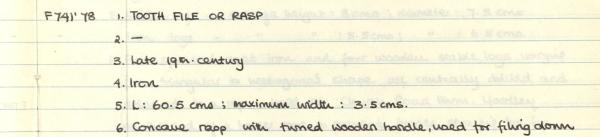 F741'78 1. TOOTH FILE OR RASP
2. —
3. Late 19th. century
4. Iron
5. L: 60.5 cms ; maximum width : 3.5 cms.
6. Concave rasp with turned wooden handle, used for filing down